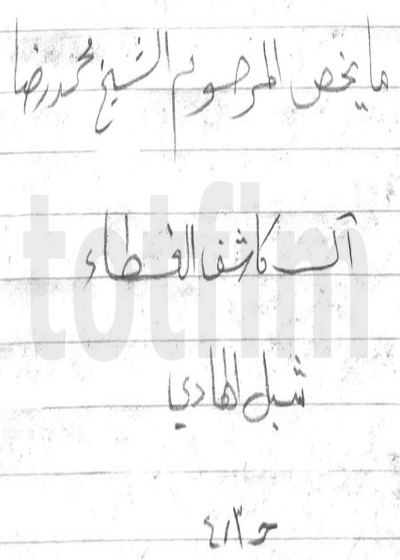 ما يخص المرحوم الشيخ محمد رضا
آل كاشف الغطاء
شبل الهادي
totfim